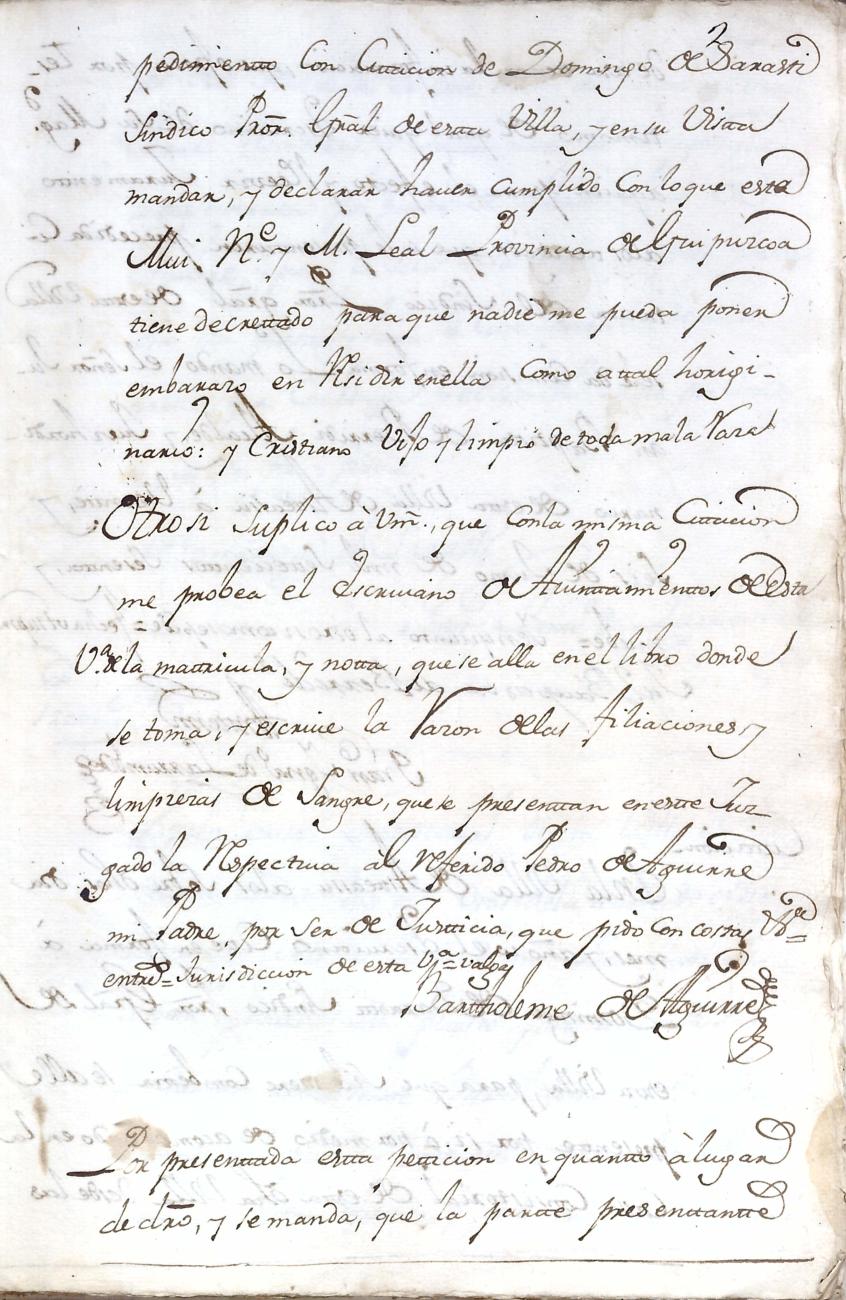 2
pedimientto Con Cittacion de Domingo de Darasti
Sindico Pror. Gral de estta Villa, y en su Vistta
mandar, y declarar haver Cumplido Con lo que esta
Mui Ne. y M. Leal Provincia de Guipuzcoa
tiene decrettado para que nadie me pueda poner
embarazo en Residir en ella Como a ttal horigi-
nario: y Cristiano Viejo y limpio de toda mala Raza
Otro si Suplico à Vm., que Con la misma Cittacion
me probea el Escrivano de Aiunttamienttos de Esta
Va. de la mattricula, y notta, que se alla en el libro donde
se toma, y escrive la Razon de las filiaciones, y
limpiezas de Sangre, que se presenttan en estte Juz-
gado la Respectiva àl Referido Pedro de Aguirre
mi Padre, por Ser de Justticia, que pido Con costas Va
entreRs= Jurisdiccion de esta Va= valga
Bartholome de Aguirre
Por presenttada estta petticion en quantto à lugar
de dro, y se manda, que la partte presenttantte